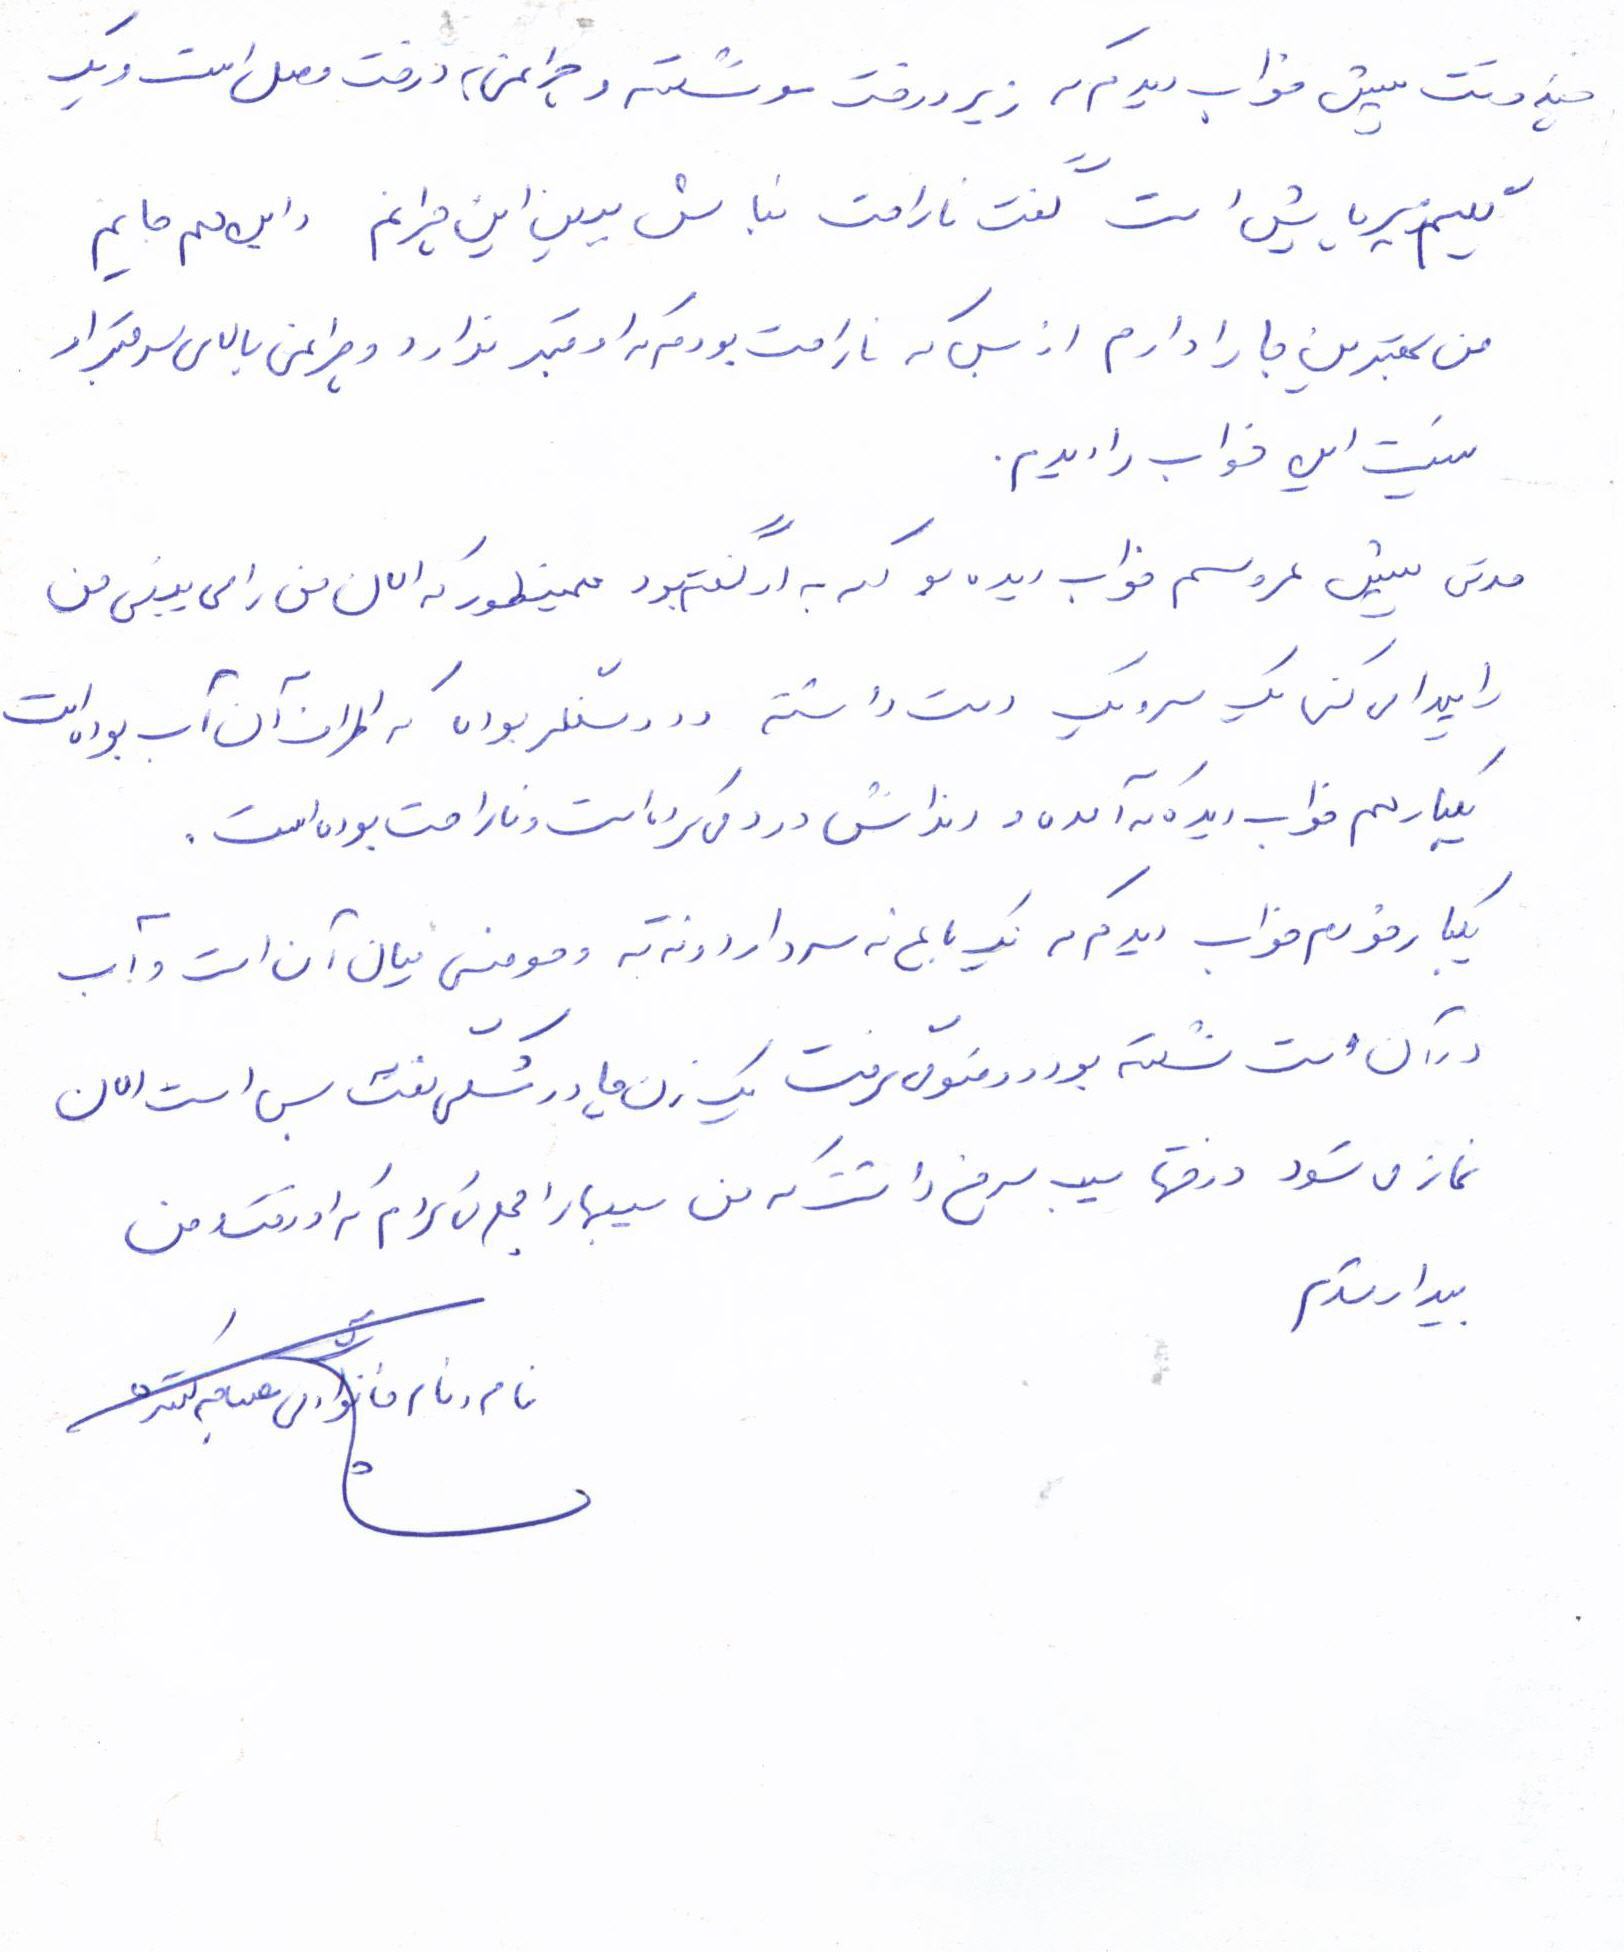 چند وقت پیش خواب دیدم که زیر درخت مو نشسته و چراغی به درخت وصل است و یک
گلیم زیر پایش است گفت ناراحت نباش ببین این چراغم و این هم جایم
من بهترین جا را دارم از بس که ناراحت بودم که او قبر ندارد و چراغی بالای سر قبر او
نیست این خواب را دیدم.
مدتی پیش عروسم خواب دیده بود که به او گفته بود همینطور که الان من را می بینی من
را پیدا می کنی یک سر و یک دست داشته و در سنگر بوده که اطراف آن آب بوده است
یکبار هم خواب دیدم که آمده و دندانش درد می کرده است و ناراحت بوده است.
یکبار خودم خواب دیدم که یک باغ نه سر دارد و نه ته و حوضی میان آن است و آب
در آن است نشسته بود و وضو می گرفت یک زن چادر مشکی گفت بس است الان
نماز می شود درختها سیب سرخ داشت که من سیبها را جمع می کردم که او رفت و من
بیدار شدم
نام و نام خانوادگی مصاحبه کننده